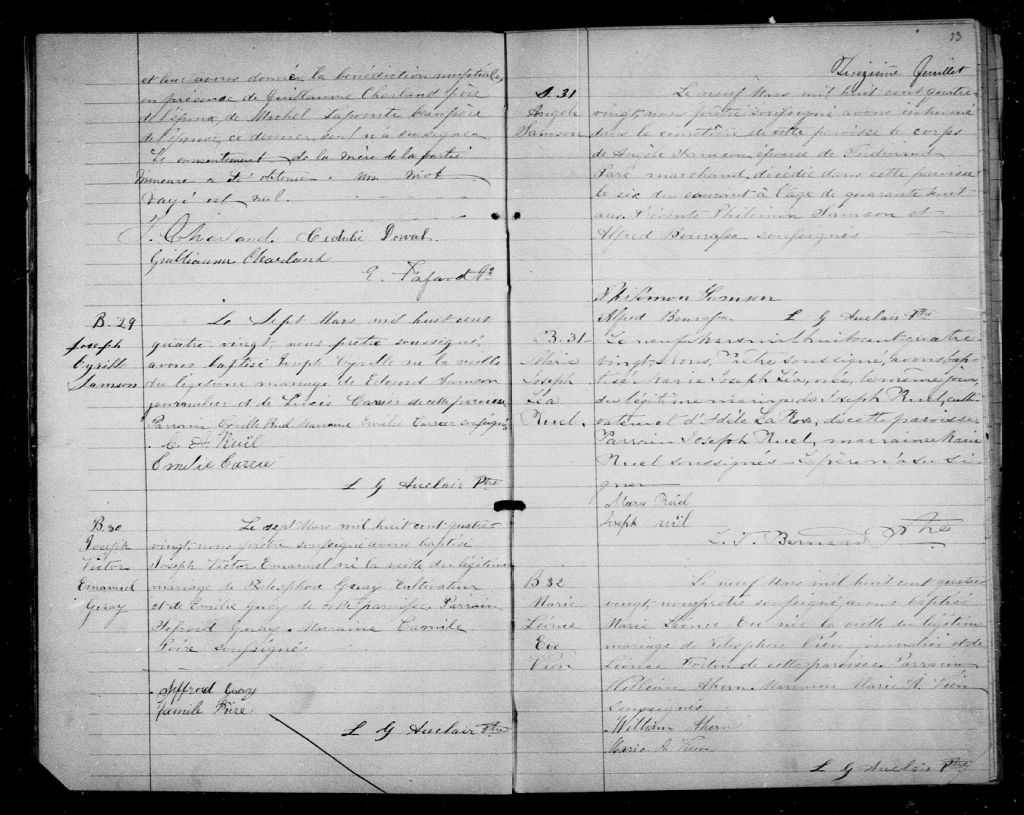 et leur avons donné la bénédiction nuptiale,
en présence de Guillaume Chorland frère
de l'époux, de Michel Lapointe
de l'épouse, ce dernier seul n'a su signer
Le consentement de la mère de la partie
mineure a été obtenu. un mot
rayé est nul.
J. Charland. Cédulie Dorval.
Guilliaume Charland
E. Fafard Ptre
B. 29
Joseph
Cyrille
Samson
Le Sept Mars mil huit cent
quatre vingt, nous prêtre soussigné,
avons baptisé Joseph Cyrille né la veille
du légitime mariage de Edouard Samson
journalier et de Lucie Carrier de cette paroisse
Parrain Cyrille Ruel Marraine Emélie Carrier soussignés
C. Ruël
Emelie Carrie
L G Auclair Ptre
B. 30
Joseph
Victor
Emanuel
Guray
Le sept Mars mil huit cent quatre
vingt, nous prêtre soussigné avons baptisé
Joseph Victor Emanuel né la veille du légitime
mariage de Télesphore Guray Cultivateur
et de Emélie Guay de cette paroisse. Parrain
Guray. Marraine Camile
Poire soussignés
Guay
Poiré
L G Auclair Ptre
13
Treizième feuillet
S. 31
Angèle
Samson
Le neuf Mars mil huit cent quatre
vingt, nous prêtre soussigné avons inhumé
dans le cimetière de cette paroisse le corps
de Angèle Samson, épouse de Ferdinand
Paré marchand, décédée dans cette paroisse
le six du courant à l'âge de quarante huit
ans. Présents Philémon Samson et
Alfred Bourassa soussignés
Philémon Samson
Alfred Bourassa. L G Auclair Ptre
B. 31
Marie
Joseph
Léa
Ruel.
Le neuf Mars mil huit cent quatre
vingt, nous, Prêtre soussigné, avons bap-
tisé Marie Joseph Léa, née, le même jour,
du légitime mariage de Joseph Ruel, culti-
vateur et d'Adèle La Rose, de cette paroisse.
Parrain Joseph Ruel, marraine Marie
Ruel soussignés. Le père n'a su si-
gner
Marie Rüel
Joseph
Bernard Ptre
B 32
Marie
Léonie
Eve
Vien
Le neuf Mars mil huit cent quatre
vingt, nous prêtre soussigné, avons baptisé
Marie Léonie Eve née la veille du légitime
mariage de Télesphore Vien, journalier et de
Léonie Fortin de cette paroisse. Parrain
William Ahern. Marraine Marie A. Vien
Soussignés
William Ahern
Marie A. Vien
L G Auclair Ptre